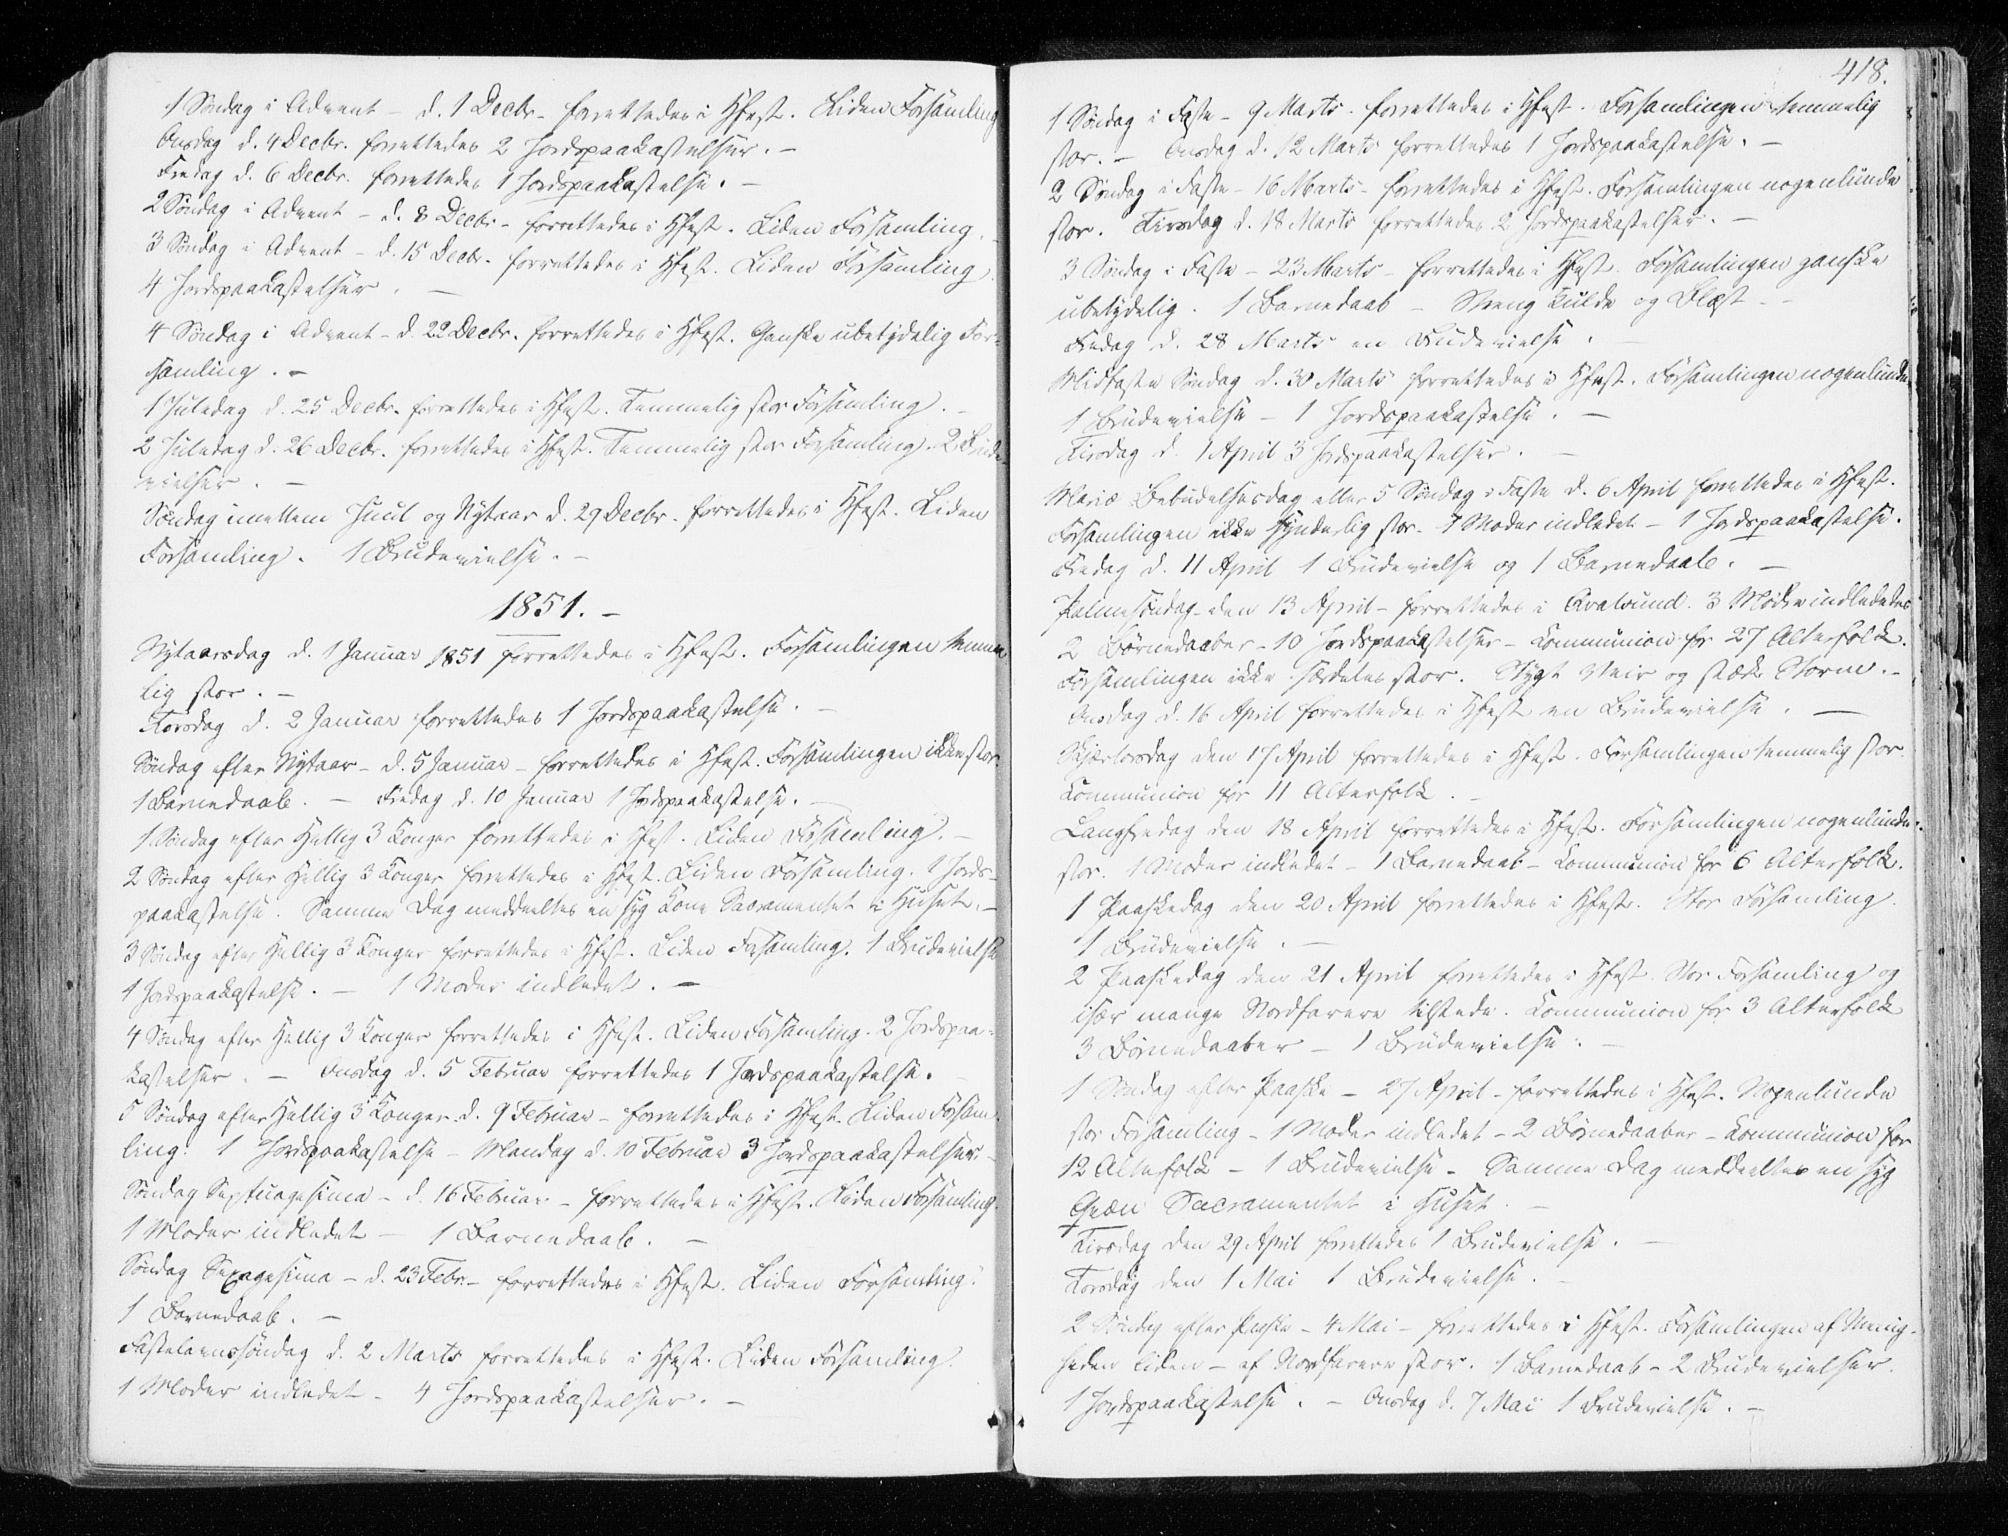 1 Søndag i Advent - d. 1 Decbr. forrettedes i Hfest. Liden Forsamling
Onsdag d. 4 Decbr. forrettedes 2 Jordspaakastelser. -
Fredag d. 6 Decbr. forrettedes 1 Jordspaakastelse. -
2 Søndag i Advent - d. 8 Decbr. forrettedes i Hfest. Liden Forsamling. -
3 Søndag i Advent - d. 15 Decbr. forrettedes i Hfest. Liden Forsamling.
4 Jordspaakastelser. -
4 Søndag i Advent - d. 22 Decbr. forrettedes i Hfest. Ganske ubetydelig For-
samling. -
1 Juledag d. 25 Decbr. forrettedes i Hfest. Temmelig stor Forsamling. -
2 Juledag d. 26 Decbr. forrettedes i Hfest. Temmelig stor Forsamling. 2 Brude-
vielser. -
Søndag imellem Juul og Nytaar d. 29 Decbr. forrettedes i Hfest. Liden
Forsamling. 1 Brudevielse. -
1851. -
Nytaarsdag d. 1 Januar 1851 forrettedes i Hfest. Forsamlingen temme
lig stor. -
Torsdag d. 2 Januar forrettedes 1 Jordspaakastelse. -
Søndag efter Nytaar - d. 5 Januar - forrettedes i Hfest. Forsamlingen ikke stor.
1 Barnedaab. - Fredag d. 10 Januar 1 Jordspaakastelse. -
1 Søndag efter Hellig 3 Konger forrettedes i Hfest. Liden Forsamling. -
2 Søndag efter Hellig 3 Konger forrettedes i Hfest. Liden Forsamling. 1 Jords-
paakastelse. Samme Dag meddeeltes en syg Kone Sacramentet i Huset. -
3 Søndag efter Hellig 3 Konger forrettedes i Hfest. Liden Forsamling. 1 Brudevielse
4 Jordspaakastelse. - 1 Moder indledet. -
4 Søndag efter Hellig 3 Konger forrettedes i Hfest. Liden Forsamling. 2 Jordspaa-
kastelser. - Onsdag d. 5 Februar forrettedes 1 Jordspaakastelse. -
5 Søndag efter Hellig 3 Konger d. 9 Februar - forrettedes i Hfest. Liden Forsam-
ling. 1 Jordspaakastelse - Mandag d. 10 Februar 3 Jordspaakastelser. -
Søndag Septuagesima - d. 16 Februar - forrettedes i Hfest. Liden Forsamling.
1 Moder indledet - 1 Barnedaab. -
Søndag Sexagesima - d. 23 Febr. - forrettedes i Hfest. Liden Forsamling.
1 Barnedaab. -
Fastelavnssøndag d. 2 Marts forrettedes i Hfest. Liden Forsamling.
1 Moder indledet - 4 Jordspaakastelser. -
418.
1 Søndag i Faste - 9 Marts. forrettedes i Hfest. Forsamlingen temmelig
stor. - Onsdag d. 12 Marts forrettedes 1 Jordspaakastelse. -
2 Søndag i Faste - 16 Marts - forrettedes i Hfest. Forsamlingen nogenlunde
stor. Tirsdag d. 18 Marts forrettedes 2 Jordspaakastelser. -
3 Søndag i Faste - 23 Marts - forrettedes i Hfest. Forsamlingen ganske
ubetydelig. 1 Barnedaab - Streng Kulde og Blæst. -
Fredag d. 28 Marts en Brudevielse. -
Midfaste Søndag d. 30 Marts forrettedes i Hfest. Forsamlingen nogenlunde
1 Brudevielse - 1 Jordspaakastelse. -
Tirsdag d. 1 April 3 Jordspaakastelser. -
Mariæ Bebudelsesdag eller 5 Søndag i Faste d. 6 April forrettedes i Hfest.
Forsamlingen ikke synderlig stor. 1 Moder indledet - 1 Jordspaakastelse.
Fredag d. 11 April 1 Brudevielse og 1 Barnedaab. -
Palmesøndag den 13 April - forrettedes i Qvalsund. 3 Mødre indledede
2 Børnedaaber - 10 Jordspaakastelser - Kommunion for 27 Alterfolk.
Forsamlingen ikke særdeles stor. Stygt Veir og stærk Storm. -
Onsdag d. 16 April forrettedes i Hfest en Brudevielse. -
Skjærtorsdag den 17 April forrettedes i Hfest. Forsamlingen temmelig stor.
Kommunion for 11 Alterfolk. -
Langfredag den 18 April forrettedes i Hfest. Forsamlingen nogenlunde
stor. 1 Moder indledet - 1 Barnedaab - Kommunion for 6 Alterfolk.
1 Paaskedag den 20 April forrettedes i Hfest. Stor Forsamling.
1 Brudevielse. -
2 Paaskedag den 21 April forrettedes i Hfest. Stor Forsamling og
især mange Nordfarere tilstede. Kommunion for 3 Alterfolk
3 Børnedaaber - 1 Brudevielse. -
1 Søndag efter Paaske - 27 April - forrettedes i Hfest. Nogenlunde
stor Forsamling - 1 Moder indledet - 2 Børnedaaber - Kommunion for
12 Alterfolk - 1 Brudevielse - Samme Dag meddeeltes en syg
Qvæn Sacramentet i Huset. -
Tirsdag den 29 April forrettedes 1 Brudevielse. -
Torsdag den 1 Mai 1 Brudevielse. -
2 Søndag efter Paaske - 4 Mai - forrettedes i Hfest. Forsamlingen af Menig-
heden liden - af Nordfarere stor. 1 Barnedaab - 2 Brudevielser.
1 Jordspaakastelse. - Onsdag d. 7 Mai 1 Brudevielse. -